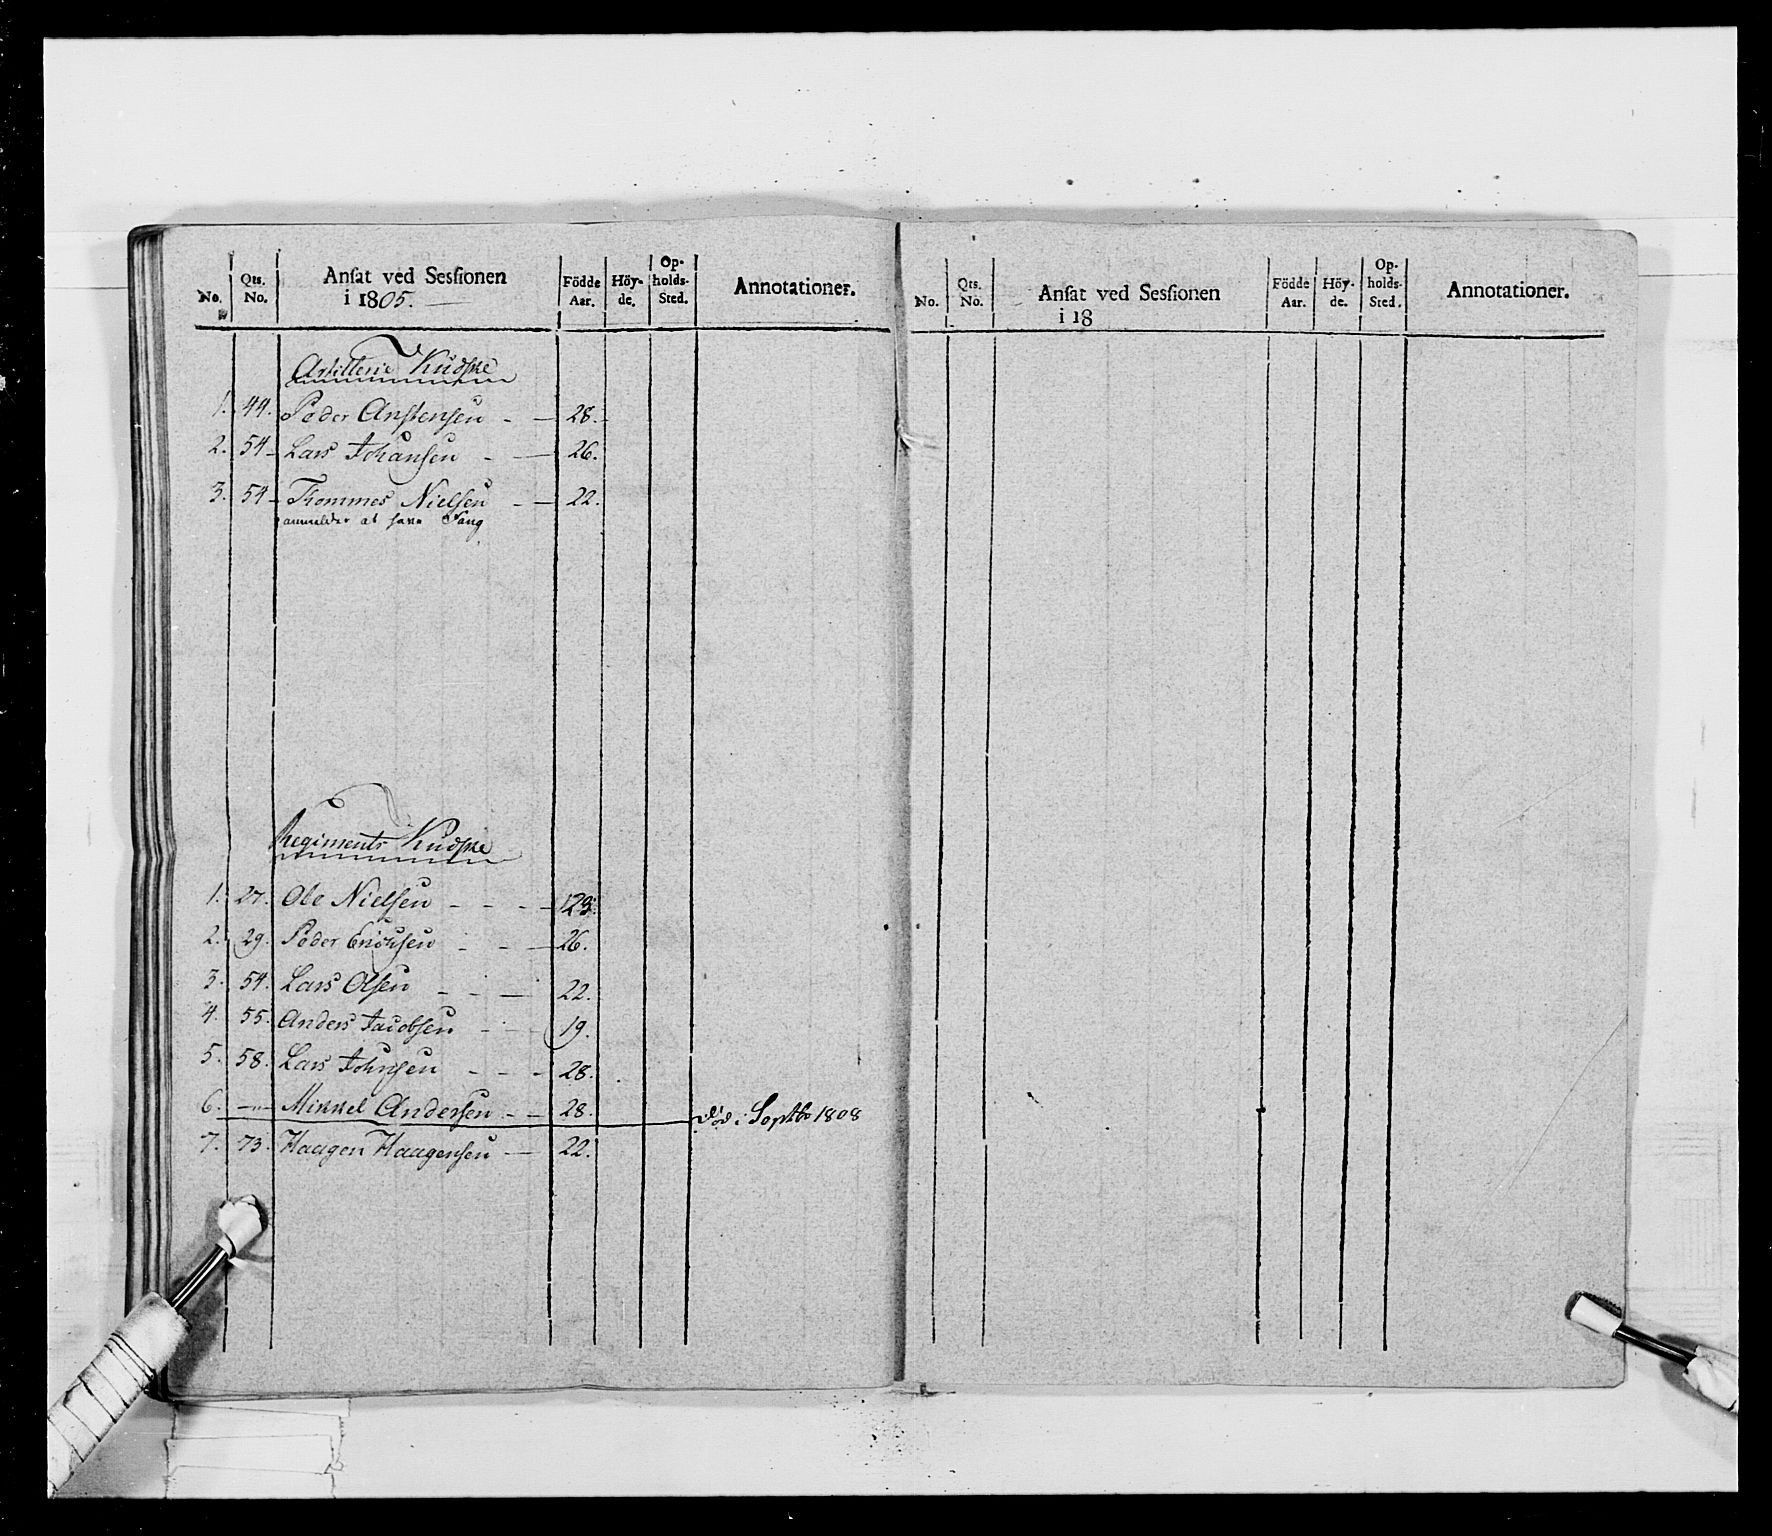 No. Qts. No. Ansat ved Sessionen i 1805. Födde Aar. Höyde. Opholds-Sted. Annotationer.
Artillerie Kudske
1. 44. Peder Anstensen - - 28.
2. 54 - Lars Johansen - - 26.
3. 54 - Thommes Nielsen - - 22.
anmelder at have
Regiments Kudske
1. 27. Ole Nielsen - - - 23.
2. 29. Peder Erichsen - - - 26.
3. 54. Lars Olsen - - - 22.
4. 55. Anders Jacobsen - - 19.
5. 58. Lars Johnsen - - - 28.
6. -"- Mikkel Andersen - - 28. död i Septbr 1808
7. 73. Haagen Haagensen - - 22.
No. Qts. No. Ansat ved Sessionen i 18 Födde Aar. Höy-de. Op-holds-Sted. Annotationer.